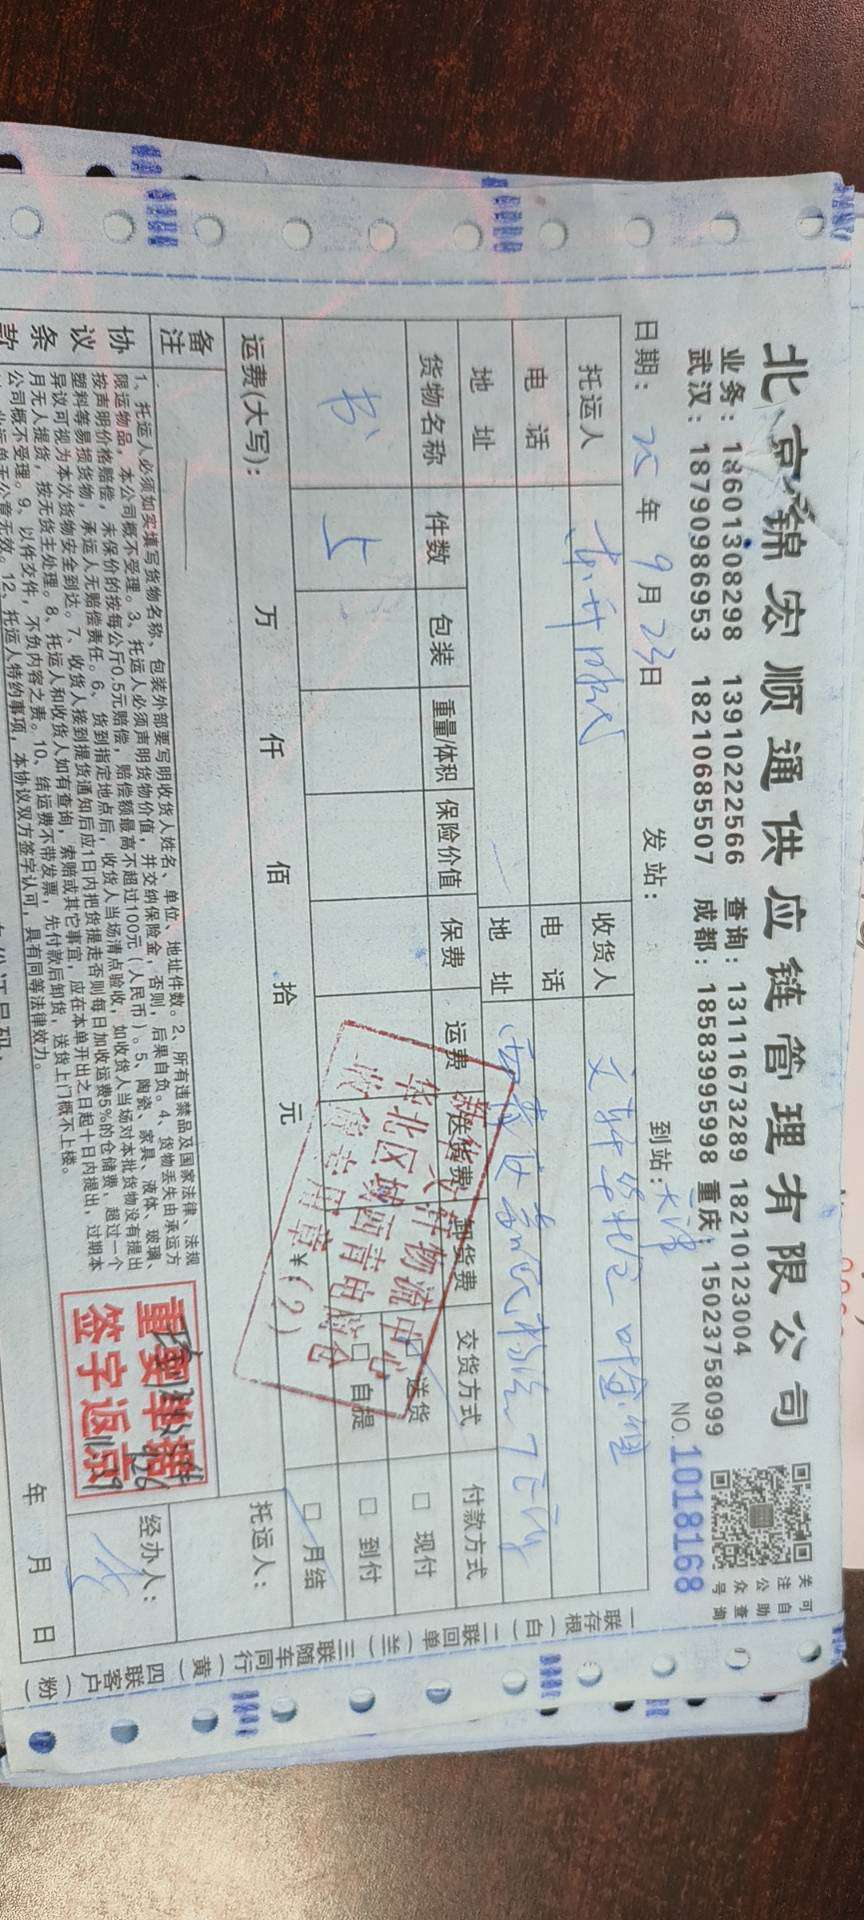 北京锦宏顺通供应链管理有限公司
业务：18601308298 13910222566 查询：13111673289 18210123004
武汉：18790986953 18210685507 成都：18583995998 重庆：15023758099
关注公众号
可自助查询
NO.1018168
日期：25年9月23日 发站： 到站：天津
托运人 收货人
电话 电话
地址 地址
货物名称 件数 包装 重量/体积 保险价值 保费 运费 送货费 卸货费 交货方式 付款方式
书 上 送货 现付
自提 到付
月结
运费(大写)： 万 仟 佰 拾 元 ¥：
托运人：
备注
经办人：
华北区域西青电商仓
收货专用章（2）
重要单据
签字返京
协议条款
1、托运人必须如实填写货物名称、包装外部要写明收货人姓名、单位、地址件数。2、所有违禁品及国家法律、法规
限运物品，本公司概不受理。3、托运人必须声明货物价值，并交纳保险金，否则，后果自负。4、货物丢失由承运方
按声明价格赔偿，未保价的按每公斤0.5元赔偿，赔偿额最高不超过100元（人民币）。5、陶瓷、家具、液体、玻璃、
塑料等易损货物，承运人无赔偿责任。6、货到指定地点后，收货人当场清点验收，如收货人当场对本批货物没有提出
异议可视为本次货物安全到达。7、收货人接到提货通知后应1日内把货提走否则每日加收运费5%的仓储费，超过一个
月无人提货，按无货主处理。8、托运人和收货人如有查询，索赔或其它事宜，应在本单开出之日起十日内提出，过期本
公司概不受理。9、以件交件，不负内容之责。10、结运费不带发票，先付款后卸货，送货上门概不上楼。
公章无效。12、托运人特约事项，本协议双方签字认可，具有同等法律效力。
年 月 日
一联存根（白）二联回单（兰）三联随车同行（黄）四联客户（粉）